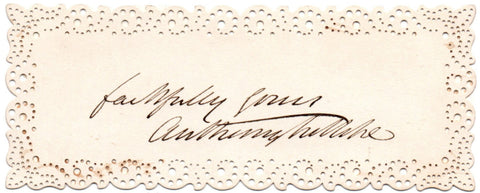 faithfully yours
Anthony Trollope